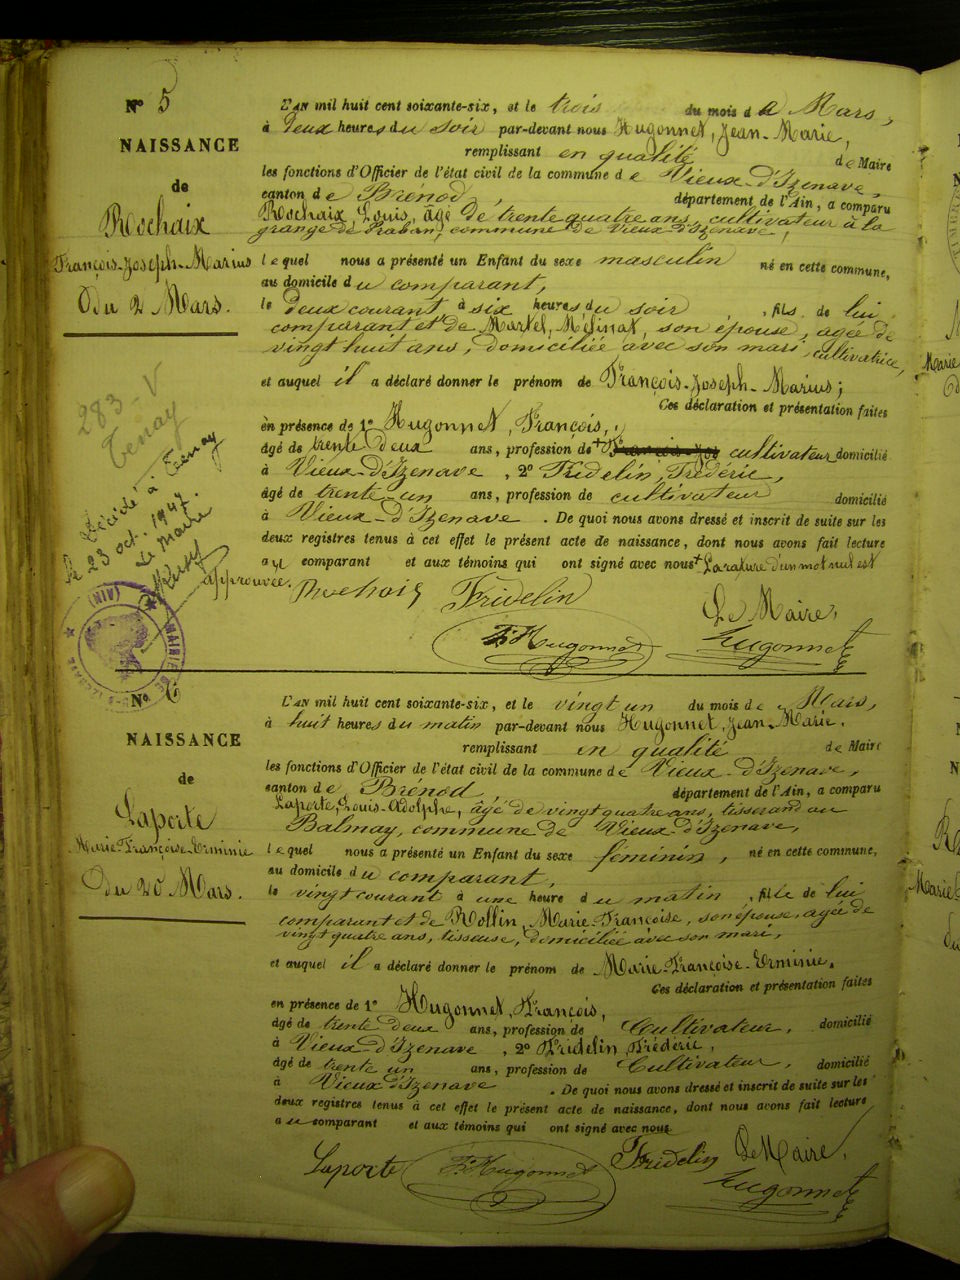 N° 5
NAISSANCE
de
Rochaix
François-Joseph-Marius
Du 2 Mars.
L'AN mil huit cent soixante-six, et le trois du mois de Mars,
à Deux heures du soir par-devant nous Hugonnet, Jean-Marie,
remplissant en qualité de Maire
les fonctions d'Officier de l'état civil de la commune de Vieux-d'Izenave,
canton de Brénod, département de l'Ain, a comparu
Rochaix, Louis, âgé de trente quatre ans, cultivateur à la
grange de Praban, commune de Vieux-d'Izenave,
lequel nous a présenté un Enfant du sexe masculin né en cette commune,
au domicile du comparant,
le deux courant à six heures du soir, fils de lui
comparant et de Martel, Mélinat, son épouse, agée de
vingt huit ans, domiciliée avec son mari, cultivatrice,
et auquel il a déclaré donner le prénom de François-Joseph-Marius;
Ces déclaration et présentation faites
en présence de 1° Hugonnet, François,
âgé de trente deux ans, profession de + cultivateur domicilié
à Vieux-d'Izenave, 2° Fridelin, Frédéric,
âgé de trente-un ans, profession de cultivateur domicilié
à Vieux-d'Izenave. De quoi nous avons dressé et inscrit de suite sur les
deux registres tenus à cet effet le présent acte de naissance, dont nous avons fait lecture
au comparant et aux témoins qui ont signé avec nous + La rature d'un mot nul est
approuvée. Rochaix Fridelin Le Maire,
F. Hugonnet Hugonnet
283-V
Tenay
Décédé à Tenay
le 23 oct. 1947.
Le Maire
MAIRIE DE
(AIN)
N° 6
NAISSANCE
de
Laporte
Marie-Françoise-Erminie
Du 20 Mars.
L'AN mil huit cent soixante-six, et le vingt un du mois de Mars,
à huit heures du matin par-devant nous Hugonnet, Jean-Marie,
remplissant en qualité de Maire
les fonctions d'Officier de l'état civil de la commune de Vieux-d'Izenave,
canton de Brénod, département de l'Ain, a comparu
Laporte, Louis-Adolphe, âgé de vingt quatre ans, tisserand au
Balmay, commune de Vieux-d'Izenave,
lequel nous a présenté un Enfant du sexe féminin, né en cette commune,
au domicile du comparant,
le vingt courant à une heure du matin, fille de lui
comparant et de Rollin, Marie-Françoise, son épouse, agée de
vingt quatre ans, tisseuse, domiciliée avec son mari,
et auquel il a déclaré donner le prénom de Marie-Françoise-Erminie.
Ces déclaration et présentation faites
en présence de 1° Hugonnet, François,
âgé de trente deux ans, profession de Cultivateur, domicilié
à Vieux-d'Izenave, 2° Fridelin, Frédéric,
âgé de trente un ans, profession de Cultivateur, domicilié
à Vieux-d'Izenave. De quoi nous avons dressé et inscrit de suite sur les
deux registres tenus à cet effet le présent acte de naissance, dont nous avons fait lecture
au comparant et aux témoins qui ont signé avec nous
Laporte F. Hugonnet Fridelin Le Maire,
Hugonnet